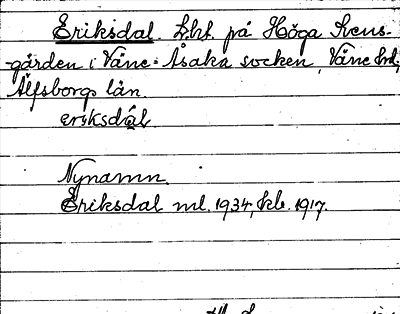 Eriksdal. Lht. på Höga Svens-
-gården i Väne-Åsaka socken, Väne hd,
Älfsborgs län.
eriksdál
Nynamn.
Eriksdal ml. 1934, kb. 1917.